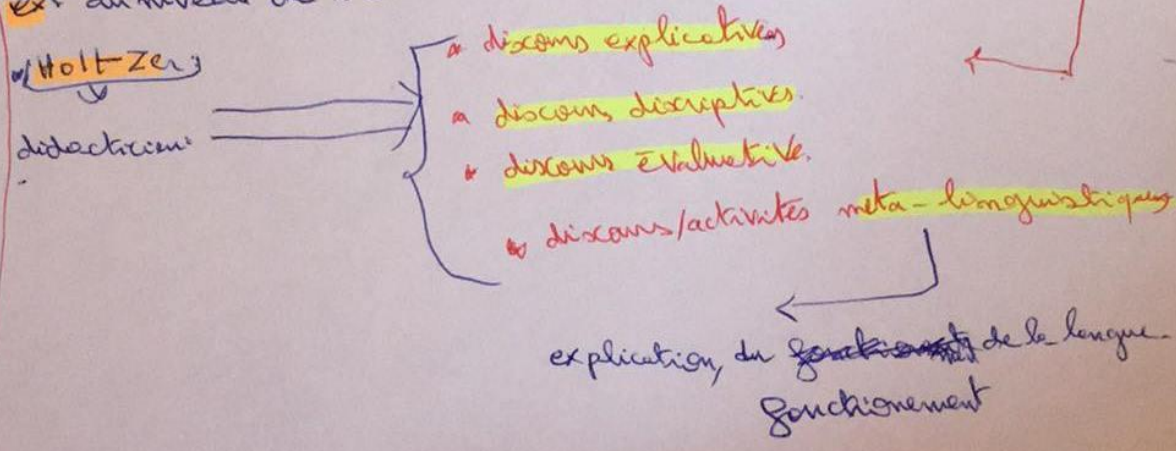 ex: au niveau de
Holt-Zer
didacticien:
discours explicatives
discours discriptives.
discours évaluative.
discours/activités meta-linguistiques
explication, du de la langue.
fonctionement